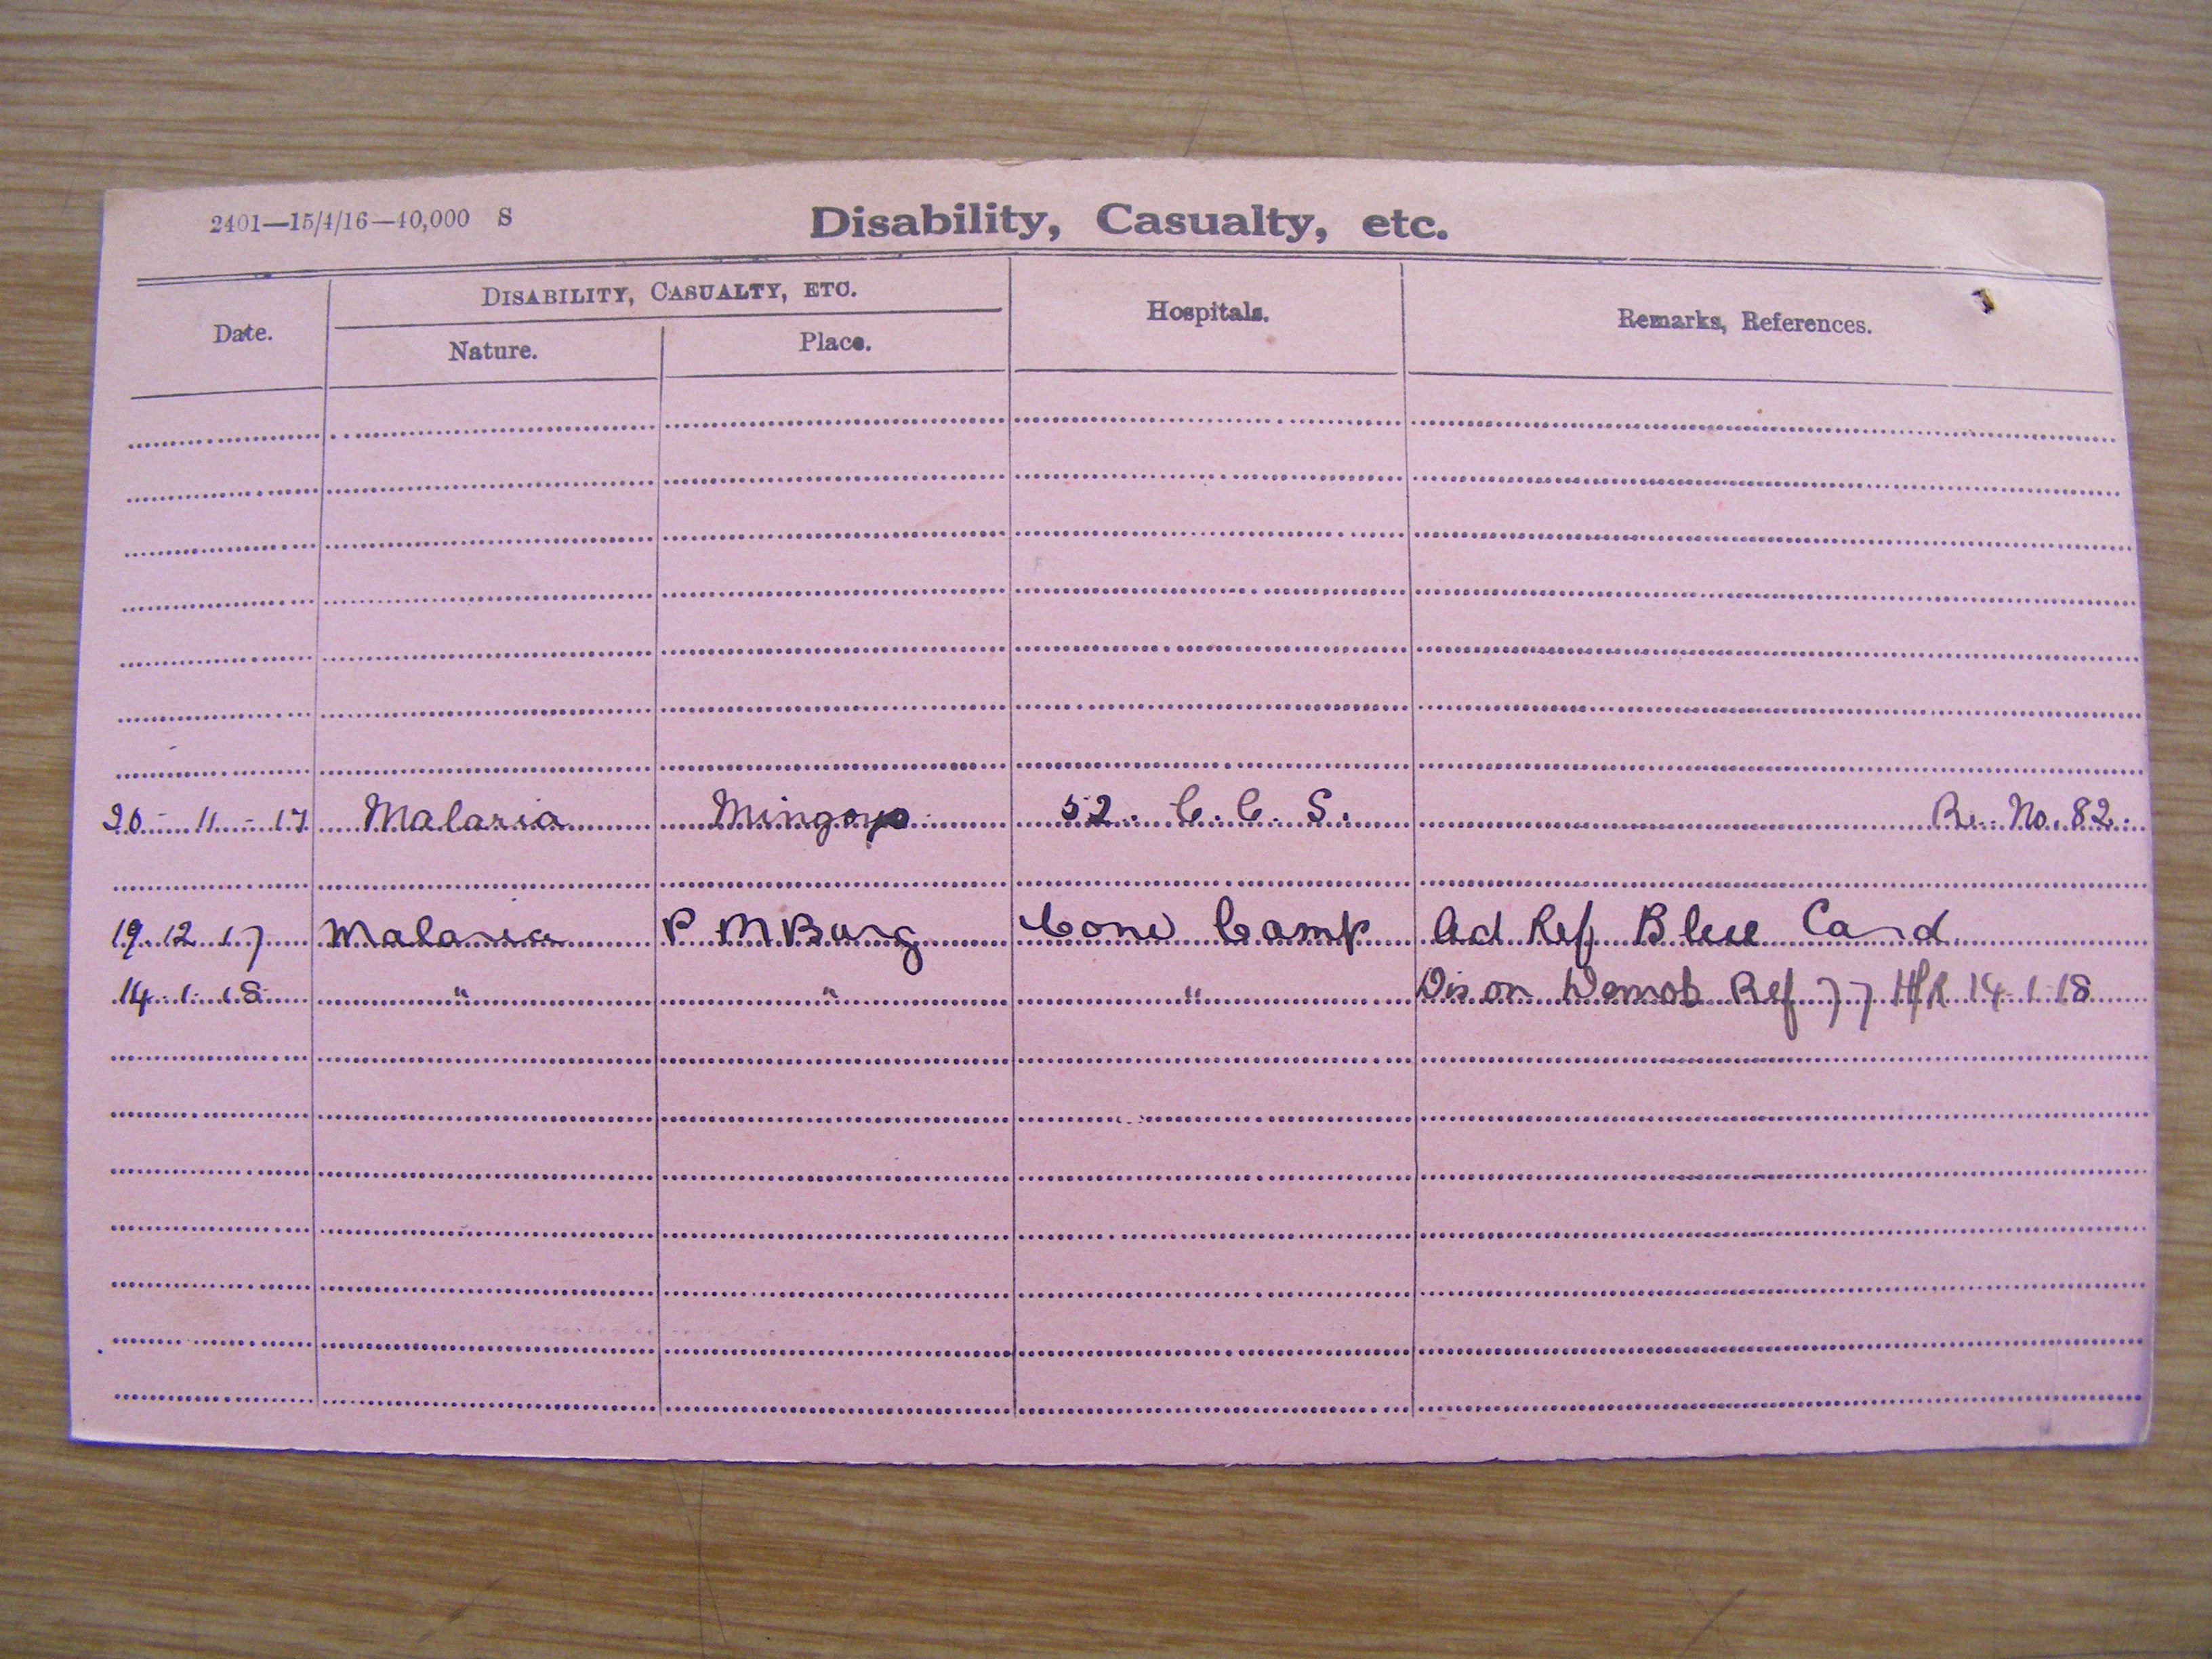 2401—15/4/16—40,000 S
Disability, Casualty, etc.
Date.
DISABILITY, CASUALTY, ETC.
Nature.
Place.
Hospitals.
Remarks, References.
20 - 11 - 17 Malaria Mingoyo 52. C. C. S. R. No. 82.
19.12.17 Malaria P M Burg Conv Camp Ad Ref Blue Card
14.1.18 " " " Dis on Demob Ref 77 H/R 14-1-18